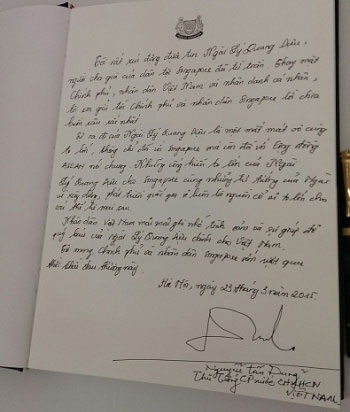 Tôi rất xúc động đưa tin Ngài Lý Quang Diệu,
người cha già của dân tộc Singapore đã từ trần. Thay mặt
Chính phủ, nhân dân Việt Nam và nhân danh cá nhân,
tôi xin gửi tới Chính phủ và nhân dân Singapore lời chia
buồn sâu sắc nhất.
Sự ra đi của Ngài Lý Quang Diệu là một mất mát vô cùng
to lớn, không chỉ đối với Singapore mà còn đối với Cộng đồng
ASEAN nói chung. Những cống hiến to lớn của Ngài
Lý Quang Diệu cho Singapore cùng những tư tưởng của Ngài
về xây dựng, phát triển quốc gia sẽ luôn là nguồn cổ vũ to lớn cho
các thế hệ mai sau.
Nhân dân Việt Nam mãi mãi ghi nhớ tình cảm và sự giúp đỡ
quý báu của Ngài Lý Quang Diệu dành cho Việt Nam.
mong Chính phủ và nhân dân Singapore sớm vượt qua
thời khắc đau thương này.
Hà Nội, ngày 23 tháng 3 năm 2015.
Nguyễn Tấn Dũng
Thủ tướng CP nước CHXHCN
VIỆT NAM